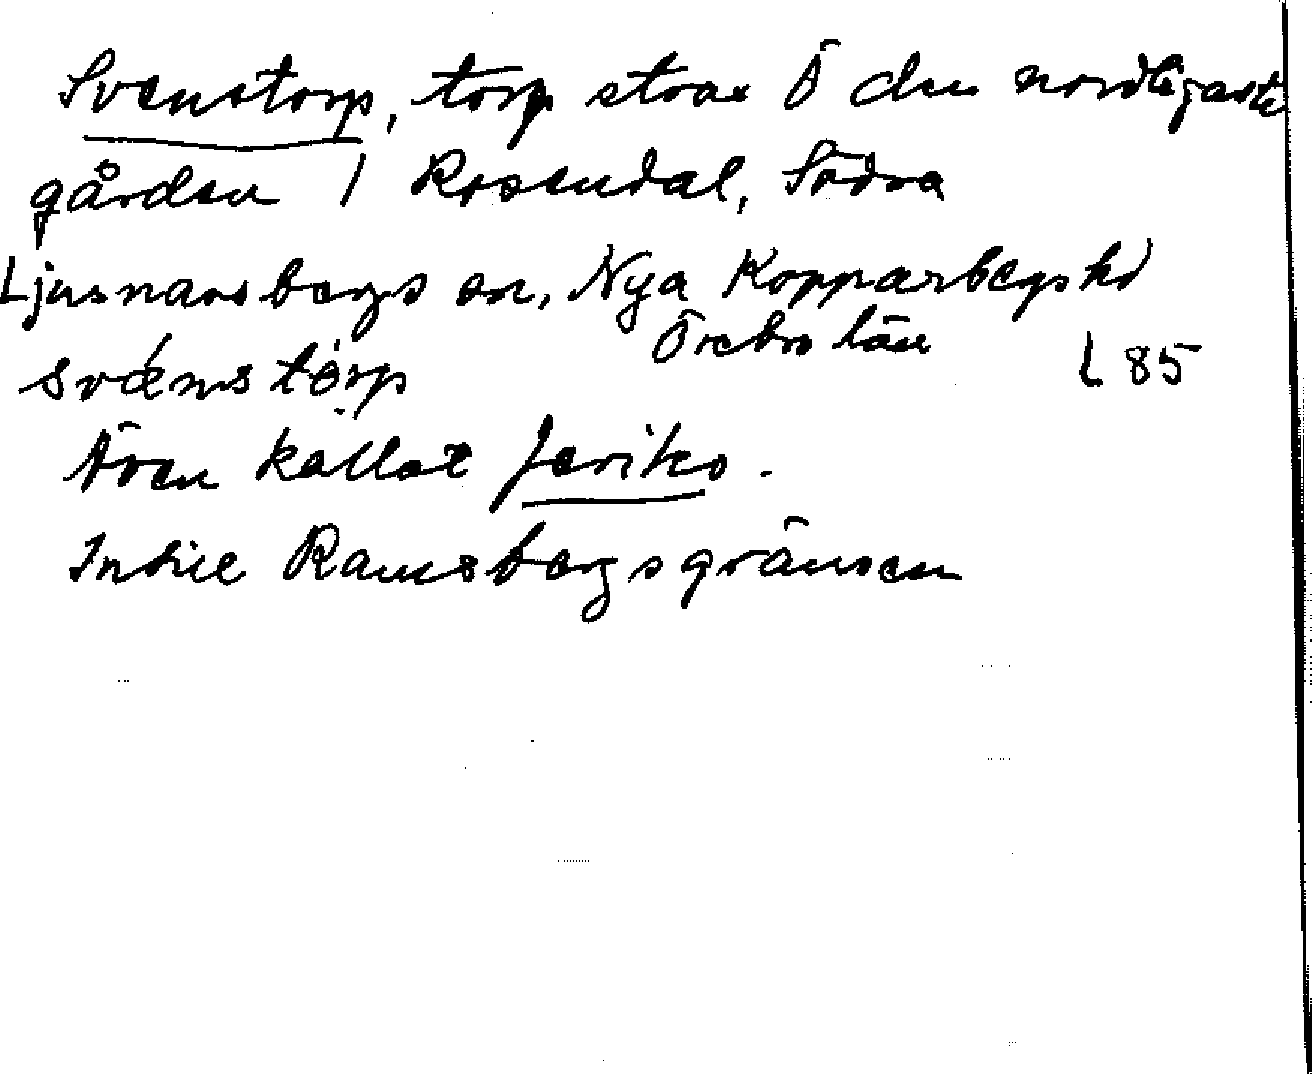 Svenstorp, torp strax Ö den nordligaste
gården i Rosendal, Södra
Ljusnarsbergs sn, Nya Kopparbergs hd
Örebro län L 85
sväms tórp
Även kallat Jeriko.
Intill Ramsbergsgränsen